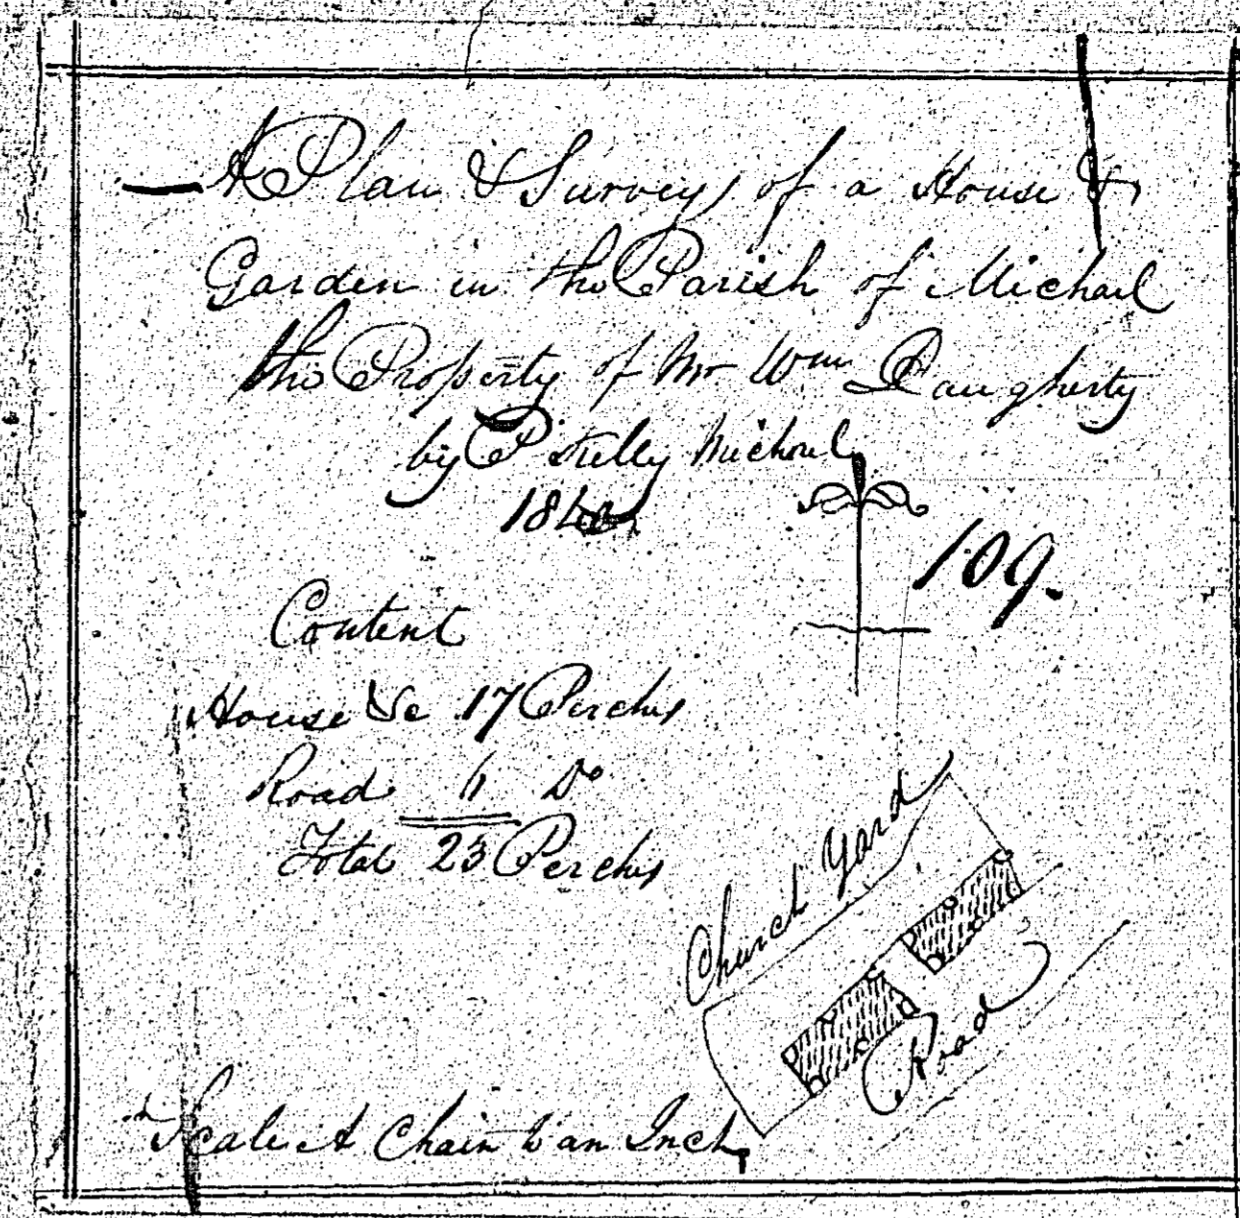 A Plan & Survey of a House &
Garden in the Parish of Michael
the Property of Mr Wm Daugherty
by P Kelly Michael
109.
Content
House &c 17 Perches
Road 6 Do
Total 23 Perches
Church Yard
Road
Scale A Chain to an Inch